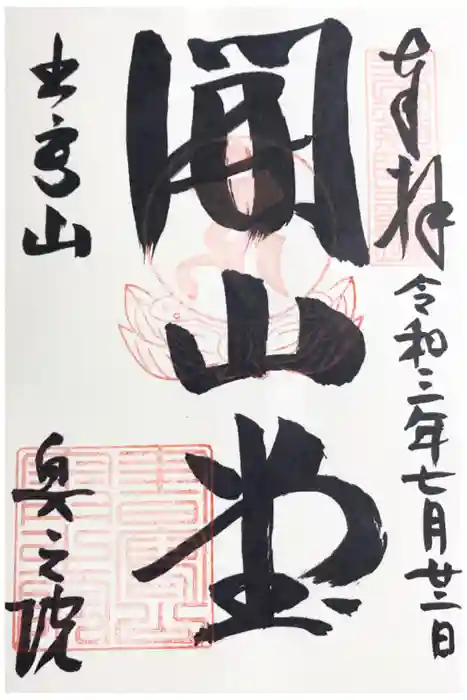 奉拝
令和三年七月廿二日
開山堂
書写山
奥之院